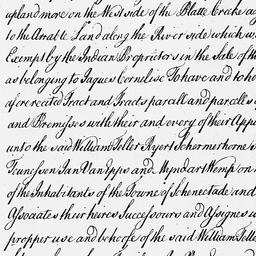 upland more on the West side of the Platte Creeke a
to the Arrable Land along the River side which w
Exempt by the Indian Proprietors in the Sale of th
as belonging to Jaques Cornelise To have and to ho
of ore recited Tract and Tracts parcell and parcells
and Premisses with their and every of their App
unto the said William Teller Ryert Schermerhorne
Teunisson Jan Van Epps and Myndart Wemp on
of the Inhabitants of the Towne of Schenectade and
Associates their heires Successours and Assignes
propper use and behoofe of the said William Telle